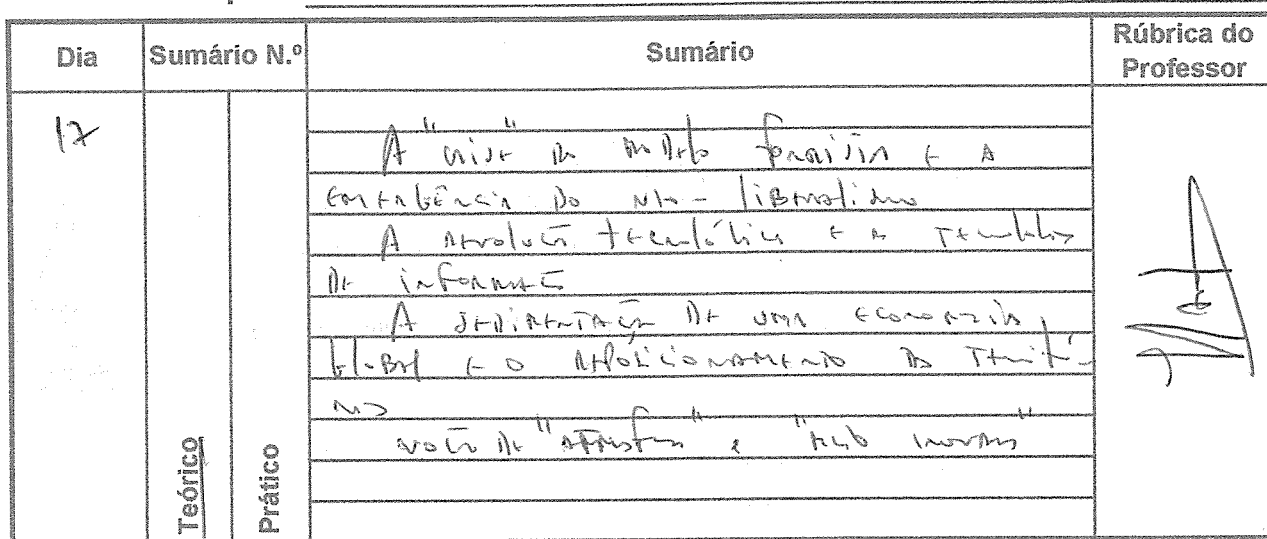 Dia Sumário N.º Sumário Rúbrica do Professor
17
A "crise" do modelo fordista e a
emergência do neo-liberalismo
A revolução tecnológica e a tecnologia
de informação
A sedimentação de uma economia
global e o reposicionamento dos territó-
rios
noção de " " e "
Teórico
Prático